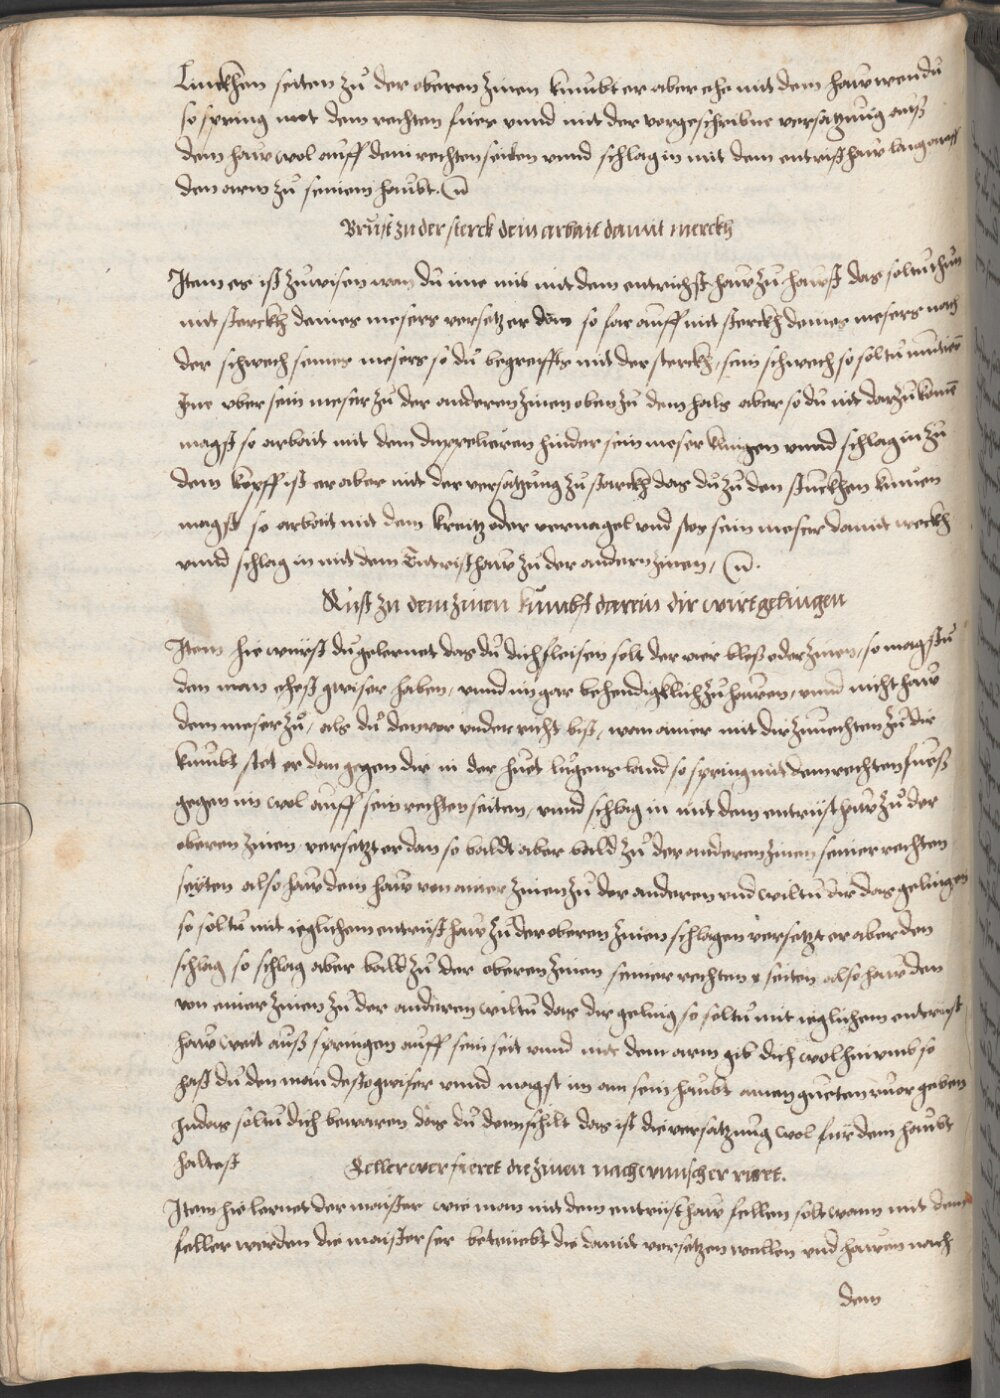 Linckhen seiten zů der oberen zinen kumbt er aber ehe mit dem haw wen du
so spring mit dem rechten fues vnnd mit der vorgeschribne versatzung auß
dem haw wol auff dein rechten seiten vnnd schlag in mit dem entrist haw lang auff
den arm zů seinem haubt.
Brust zu der sterck dein arbait damit merckh
Item es ist zuwisen wan du ime mit mit dem entrichst haw zu hawst das soltu thun
mit sterckh deines mesers versetz er dan so far auff mit sterckh deines mesers nach
der schwech seines mesers so du begreiffts mit der sterckh sein schwech so soltu
Ine vber sein meser zu der anderen zinen oben zu dem hals aber so du nit darzu komē
magst so arbait mit dem duppelieren hinder sein meser klingen vnnd schlag in zu
dem kopff ist er aber mit der versatzung zu starckh das du zu den stuckhen kumen
magst so arbait mit dem kreitz oder vernagel vnd stos sein meser damit weckh
vnnd schlag in mit dem Entrist haw zu der andern zinen,
Rust zu dem zinen kumbst darein dir wirt gelingen
Item hie würst du gelernet das du dich fleisen solt der vier bles oder zinen, so magstu
den man ehest gwiser haben, vnnd im gar behendigklich zu hawen, vnnd nicht haw
dem meser zů, als du denvor vnderricht bist, wan ainer mit dir zuuechten zu dir
kumbt stet er dan gegen dir in der huet lugens land so spring mit dem rechten fueß
gegen im wol auff sein rechten seiten, vnnd schlag in mit dem entrüst haw zů der
oberen zinen versetzt er dan so baldt aber bald zů der anderen zinen seiner rechten
seyten also haw dem haw von ainer zinen zu der anderen vnd wiltu dir das gelingen
so soltu mit ieglichem entrüst haw zu der oberen zinen schlagen versetzt er aber den
schlag so schlag aber bald zu der oberen zinen seiner rechten seiten also haw den
von einer zinen zu der anderen wiltu das dir geling so soltu mit ieglichem entrüst
haw weit auß springen auff sein seit vnnd mit dem arm gib dich wol hinumb so
hast du den man desto gwiser vnnd magst im am sein haubt ainen gueten ruer geben
In das soltu dich bewaren das du dein schilt das ist die versatzung wol für dem haubt
haltest
Feller wer fieret die zinen nach wunsch er rüret.
Item hie lernet der maister wie man mit dem entrüst haw fellen solt wann mit dem
feller werden die maister ser betrüebt die damit versetzen wellen vnd hawen nach
dem